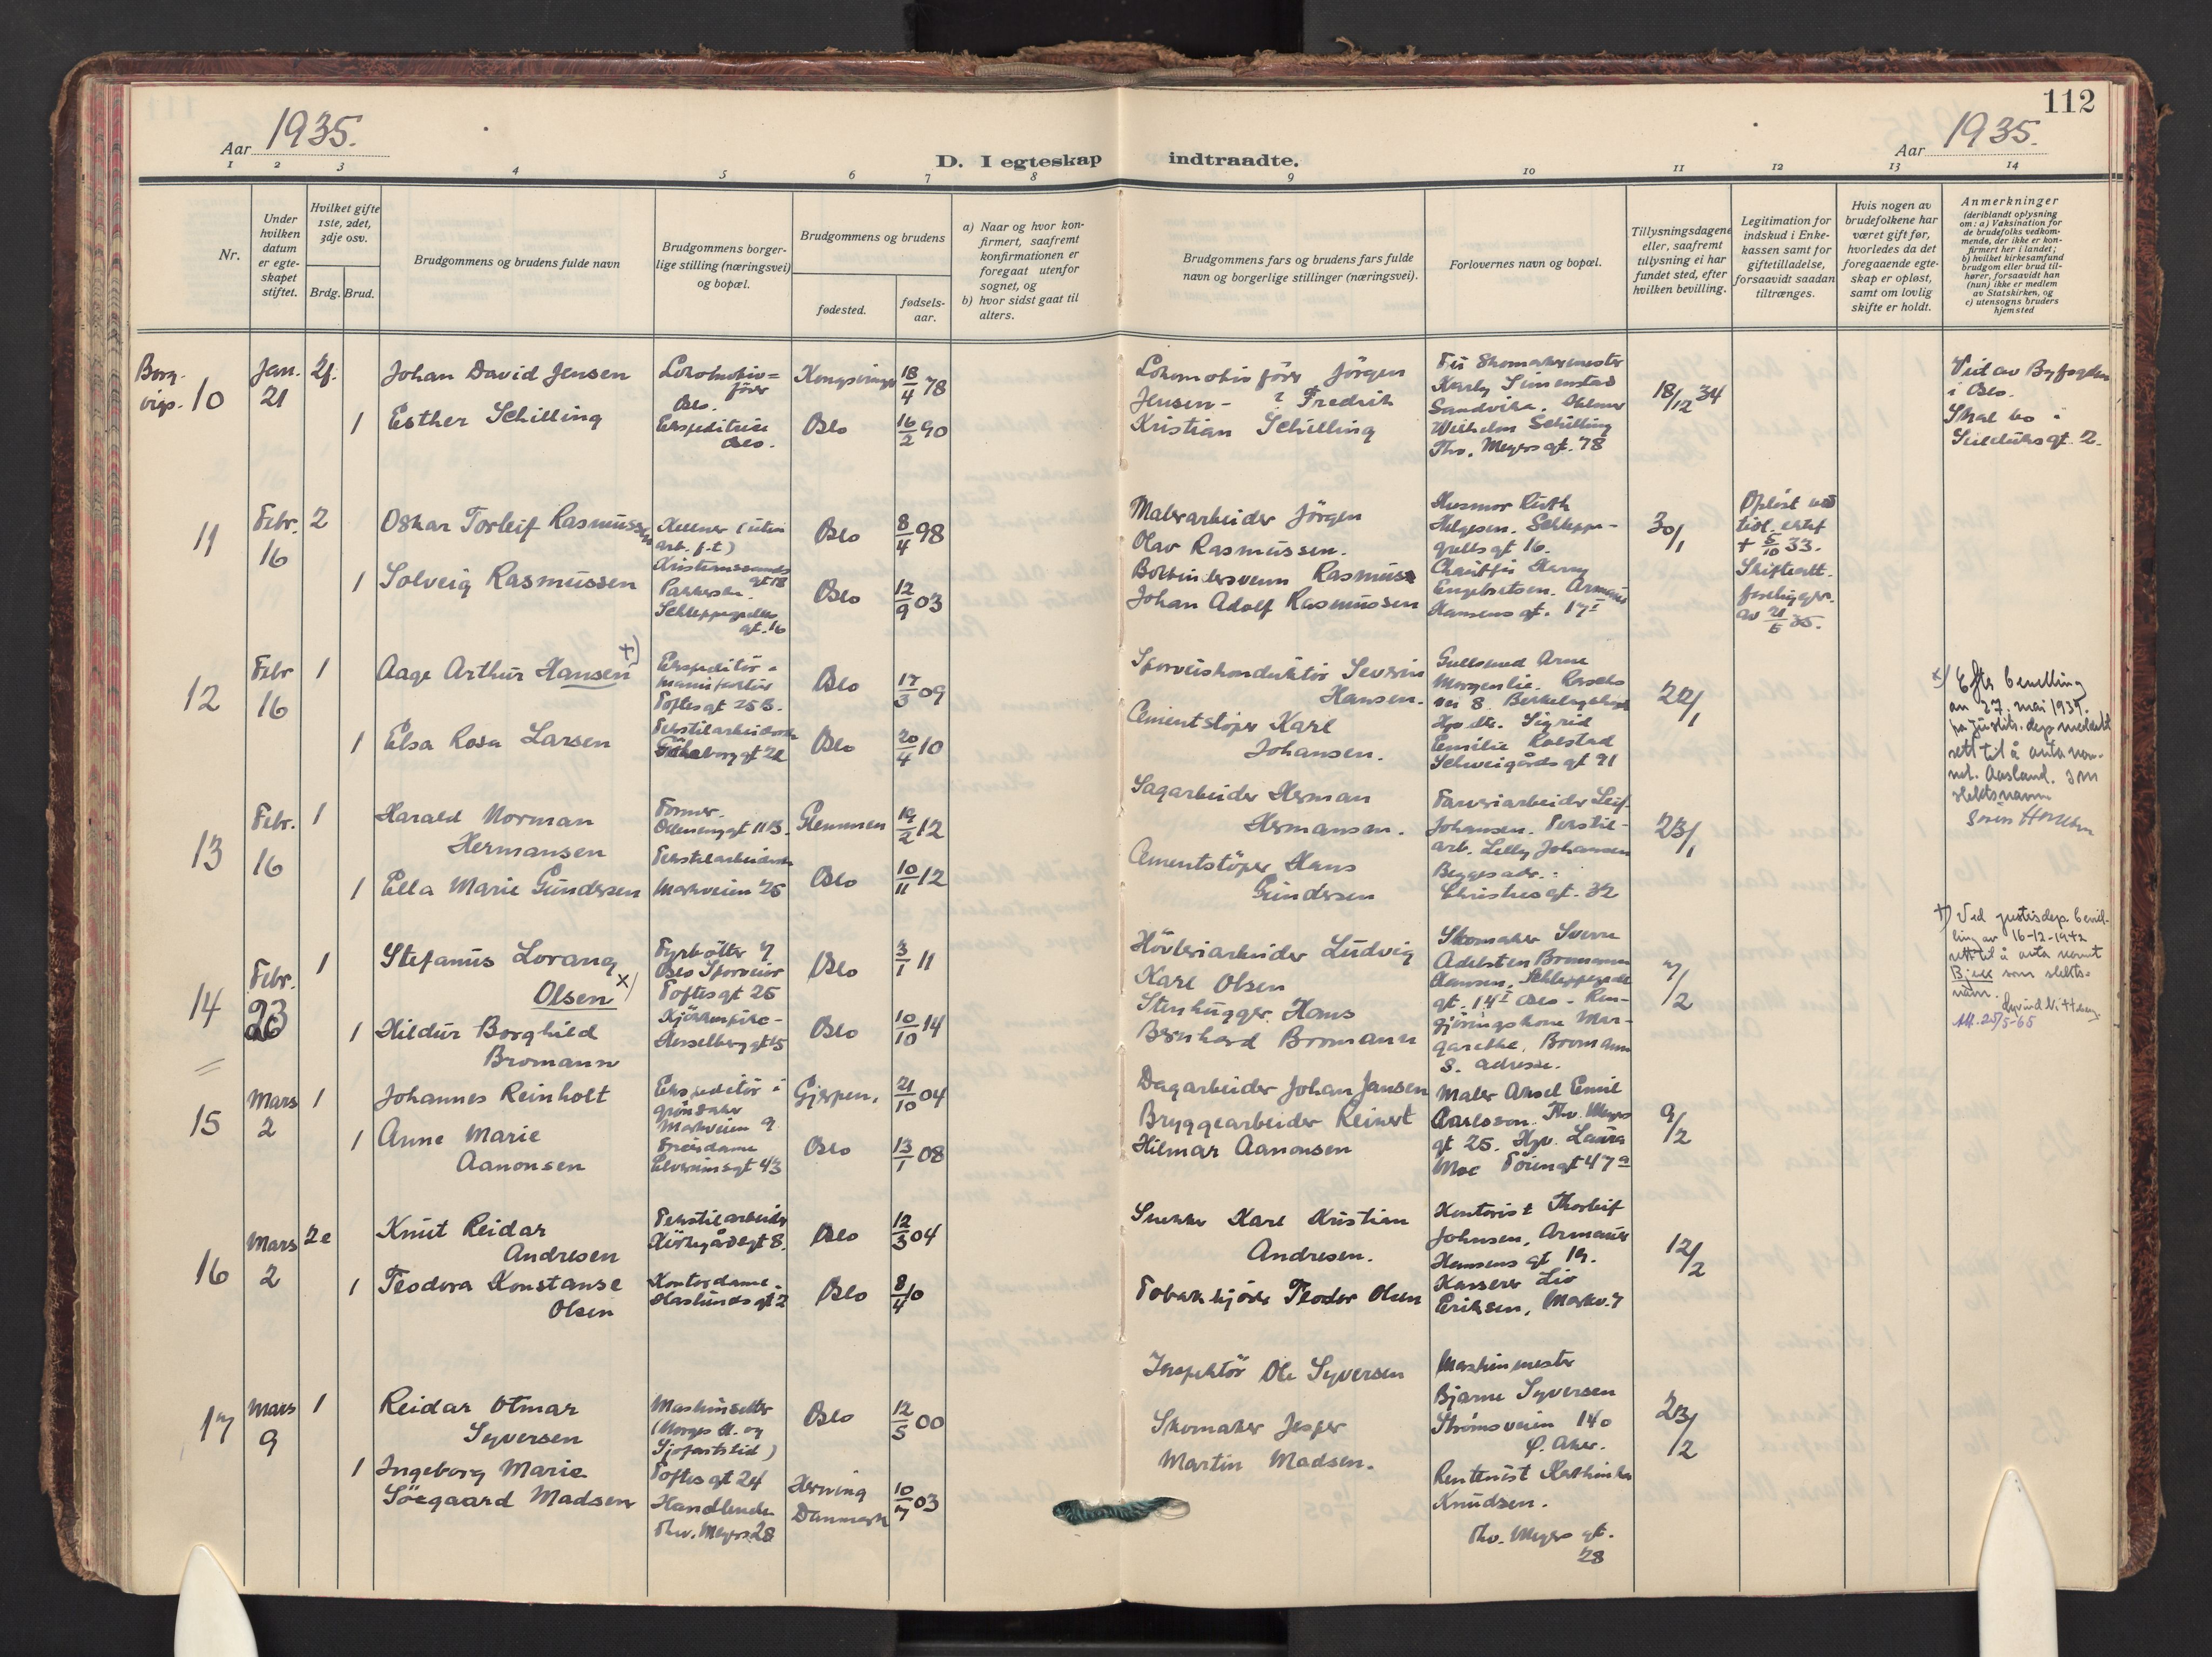 112
Aar 1935.
D. I egteskap indtraadte.
Aar 1935.
1 2 3 4 5 6 7 8 9 10 11 12 13 14
Nr.
Under hvilken datum er egteskapet stiftet.
Hvilket gifte 1ste, 2det, 3dje osv.
Brdg. Brud.
Brudgommens og brudens fulde navn
Brudgommens borgerlige stilling (næringsvei) og bopæl.
Brudgommens og brudens
fødested.
fødselsaar.
a) Naar og hvor konfirmert, saafremt konfirmationen er foregaat utenfor sognet, og
b) hvor sidst gaat til alters.
Brudgommens fars og brudens fars fulde navn og borgerlige stillinger (næringsvei).
Forlovernes navn og bopæl.
Tillysningsdagene eller, saafremt tillysning ei har fundet sted, efter hvilken bevilling.
Legitimation for indskud i Enkekassen samt for giftetilladelse, forsaavidt saadan tiltrænges.
Hvis nogen av brudefolkene har været gift før, hvorledes da det foregaaende egteskap er opløst, samt om lovlig skifte er holdt.
Anmerkninger
(deriblandt oplysning om: a) Vaksination for de brudefolks vedkommende, der ikke er konfirmert her i landet; b) hvilket kirkesamfund brudgom eller brud tilhører, forsaavidt han (hun) ikke er medlem av Statskirken, og c) utensogns bruders hjemsted
Borg. vigs. 10
Jan. 21
2f.
Johan David Jensen
Lokomotivfører Oslo.
Kongsvinger
18/4 78
Lokomotivfører Jörgen Jensen
Sandvika.
18/12 34
Viet av Byfogden i Oslo.
Skal bo i
Seilduksgt. 2.
1
Esther Schilling
Ekspeditrice Oslo.
Oslo
16/2 90
Fredrik Kristian Schilling
Wilhelm Schilling
Thv. Meyersgt. 78
11
Febr. 16
2
Oskar Torleif Rasmussen
Kellner (uten arb. f.t)
Kristianssandsgt 18
Oslo
8/4 98
Malerarbeider Jörgen
Olav Rasmussen.
Husmor Ruth
Helgesen. Schleppegrellsgt 16.
30/1
Opløst ved
tidl. ektef
+ 5/10 33.
Skifteatt.
foreligger.
av 21/5 35.
1
Solveig Rasmussen
Schleppegrellsgt. 16
Oslo
12/9 03
Bokbindersvenn Rasmus
Johan Adolf Rasmussen
Engebretsen. Armauer
Hansens gt. 17 I
12
Febr 16
1
Aage Arthur Hansen +)
Ekspeditör i
manufaktur
Toftesgt 25B.
Oslo
17/3 09
Sporveiskonduktör Sevrin
Hansen.
Gullsmed Arne
Morgenlie.
vei 8. Bekkelagshögda
22/1
x) Efter bevilling
av 27. mai 1935.
fra Justits. dep meddelt
rett til å anta navnet. Aasland. som
slektsnavn
1
Elsa Rosa Larsen
Tekstilarbeiderske
Göteborggt 22
Oslo
20/4 10
Cementstöper Karl
Johansen.
Sigrid
Emilie Rolstad
Schweigårdsgt 91
13
Febr. 16
1
Harald Norman
Hermansen
Former.
Odensegt 11B.
Glemmen
19/2 12
Sagarbeider Herman
Hermansen.
Farveriarbeider Leif
Johansen. Tekstilarb. Lilly Johansen
23/1
1
Ella Marie Gundersen
Tekstilarbeiderske
Markveien 25
Oslo
10/11 12
Cementstöper Hans
Gundersen
Begges adr.:
Christiesgt. 32
14
Febr. 23
1
Stefanus Lorang
Olsen x)
Fyrböter v
Oslo Sporveier
Toftesgt 25
Oslo
3/1 11
Høvleriarbeider Ludvig
Karl Olsen
Skomaker Sverre
Adelsten Bromann
Hansen, Schleppegrells
gt. 14 I Oslo - Ren-
7/2
+) Ved justisdep. bevilling av 16-12-1942
rett til å anta navnet
Bjell som slektsnavn.
Alf. 25/5-65
1
Hildur Borghild
Bromann
Kjökkenpike -
Hesselberggt 5
Oslo
10/10 14
Stenhugger Hans
Bernhard Bromann
gjöringskone Margarethe, Bromann
s. adresse.
15
Mars 2
1
Johannes Reinholt
Ekspeditör i
grönsaker
Markveien 9
Gjerpen.
21/10 04
Dagarbeider Johan Jansen
Maler Aksel Emil
Karlsson. Thv. Meyers
gt 25. Hpv. Laura
Moe Töiengt 47 a
9/2
1
Anne Marie
Aanonsen
Oslo
13/1 08
Bryggearbeider Reinert
Hilmar Aanonsen
16
Mars 2
2e
Knut Reidar
Andresen
Tekstilarbeider
Kirkegårdsgt 8.
Oslo
12/3 04
Snekker Karl Kristian
Andresen.
Kontorist Thorleif
Johnsen, Armauer
Hansens gt 19.
12/2
1
Teodora Konstanse
Olsen
Kontordame.
Haslunds gt 2
Oslo
8/4 10
Teodor Olsen
Kasserer Liv
Eriksen, Markv. 7
17
Mars 9
1
Reidar Otmar
Syversen
Maskinsetter
(Norges H. og
Sjøfartstid)
Toftesgt 24
Oslo
12/5 00
Inspektör Ole Syversen
Maskinmester
Bjarne Syversen
Strømsveien 140
Ø. Aker.
23/2
1
Ingeborg Marie
Söegaard Madsen
Handlende
Thv. Meyers 28
Herning
Danmark
10/7 03
Skomaker Jesper
Martin Madsen.
Rentenist Kathinka
Knudsen.
Thv. Meyers gt.
28